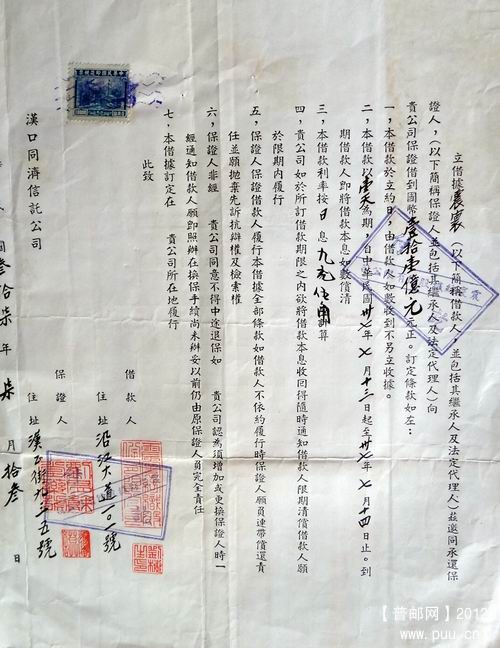 立借據農裏（以下簡稱借款人，並包括其繼承人及法定代理人）茲邀同承還保
證人，（以下簡稱保證人並包括其繼承人及法定代理人）向
貴公司保證借到國幣壹拾壹億元元正。訂定條款如左：
一，本借款於立約日，由借款人如數收到不另立收據。
二，本借款以壹天為期，自中華民國卅七年七月十三日起至卅七年七月十四日止。到
期借款人即將借款本息如數償清
三，本借款利率按日息九元伍角計算
四，貴公司如於所訂借款期限之內欲將借款本息收回得隨時通知借款人限期清償借款人願
於限期內履行
五，保證人保證借款人履行本借據全部條款如借款人不依約履行時保證人願負連帶償還責
任並願拋棄先訴抗辯權及檢索權
六，保證人非經　貴公司同意不得中途退保如　貴公司認為須增加或更換保證人時一
經通知借款人願即照辦在換保手續尚未辦妥以前仍由原保證人負完全責任
七，本借據訂定在　貴公司所在地履行
此致
漢口同濟信託公司
借款人
住址沿江大道一〇一號
保證人
住址漢正街九三五號
國叁拾柒年柒月拾叁日
中華民國印花稅票
【普邮网】2012
www.puu.cn